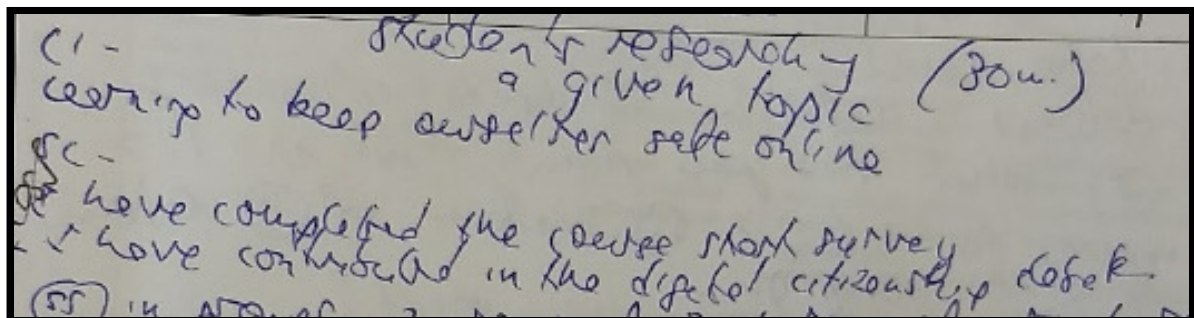 students research
a given topic (30m.)
LI -
Learning to keep ourselves safe online
SC -
have completed the course start survey
- I have contributed in the digital citizenship
in